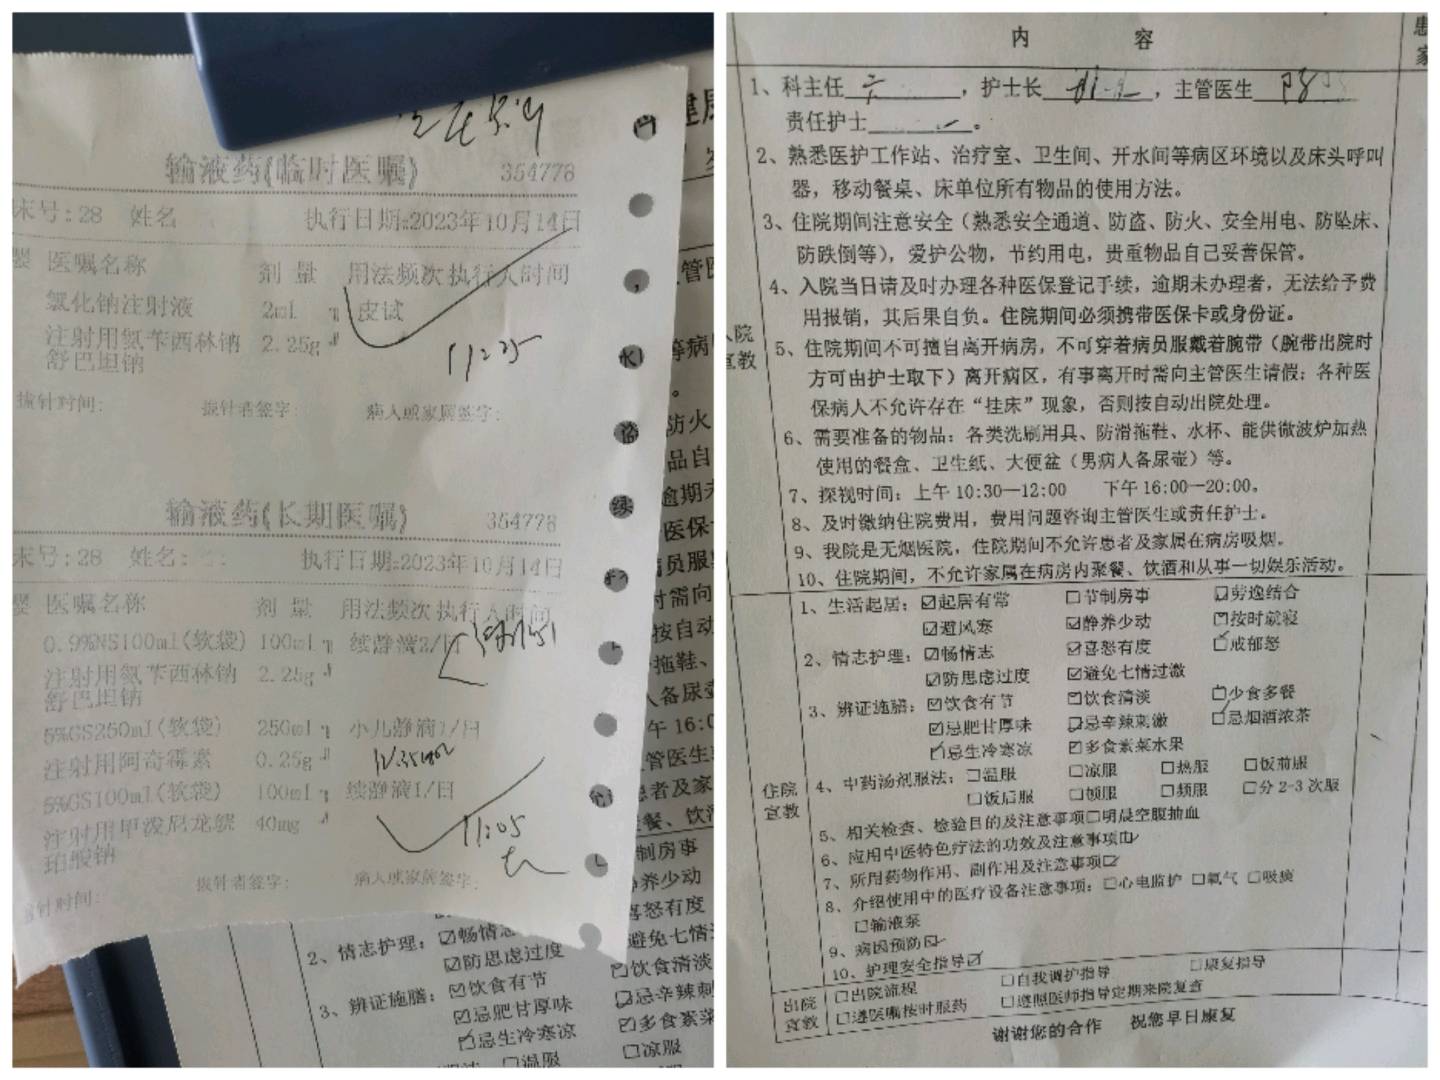 输液药(临时医嘱) 354778
床号:28 姓名 执行日期:2023年10月14日
婴 医嘱名称 剂量 用法频次 执行人时间
氯化钠注射液 2ml 皮试
注射用氨苄西林钠 2.25g
舒巴坦钠
11:25
拔针时间: 拔针者签字: 病人或家属签字:
输液药(长期医嘱) 354778
床号:28 姓名: 执行日期:2023年10月14日
婴 医嘱名称 剂量 用法频次 执行人时间
0.9%NS100ml(软袋) 100ml 续静滴2/日
注射用氨苄西林钠 2.25g
舒巴坦钠
5%GS250ml(软袋) 250ml 小儿静滴1/日
注射用阿奇霉素 0.25g
5%GS100ml(软袋) 100ml 续静滴1/日
注射用甲泼尼龙琥 40mg 11:05
珀酸钠
拔针时间: 拔针者签字: 病人或家属签字:
制房事
养少动
2、情志护理:☑畅情志 喜怒有度
☑防思虑过度 避免七情过
3、辨证施膳:☑饮食有节 ☑饮食清淡
☑忌肥甘厚味 ☑忌辛辣刺
☑忌生冷寒凉 ☑多食素菜
□温服 □凉服
内 容
1、科主任 ,护士长 ,主管医生
责任护士 。
2、熟悉医护工作站、治疗室、卫生间、开水间等病区环境以及床头呼叫
器,移动餐桌、床单位所有物品的使用方法。
3、住院期间注意安全(熟悉安全通道、防盗、防火、安全用电、防坠床、
防跌倒等),爱护公物,节约用电,贵重物品自己妥善保管。
4、入院当日请及时办理各种医保登记手续,逾期未办理者,无法给予费
用报销,其后果自负。住院期间必须携带医保卡或身份证。
入院
宣教
5、住院期间不可擅自离开病房,不可穿着病员服戴着腕带(腕带出院时
方可由护士取下)离开病区,有事离开时需向主管医生请假;各种医
保病人不允许存在“挂床”现象,否则按自动出院处理。
6、需要准备的物品:各类洗刷用具、防滑拖鞋、水杯、能供微波炉加热
使用的餐盒、卫生纸、大便盆(男病人备尿壶)等。
7、探视时间:上午10:30—12:00 下午16:00—20:00。
8、及时缴纳住院费用,费用问题咨询主管医生或责任护士。
9、我院是无烟医院,住院期间不允许患者及家属在病房吸烟。
10、住院期间,不允许家属在病房内聚餐、饮酒和从事一切娱乐活动。
住院
宣教
1、生活起居:☑起居有常 □节制房事 ☑劳逸结合
☑避风寒 ☑静养少动 ☑按时就寝
2、情志护理:☑畅情志 ☑喜怒有度 ☑戒郁怒
☑防思虑过度 ☑避免七情过激
3、辨证施膳:☑饮食有节 ☑饮食清淡 ☑少食多餐
☑忌肥甘厚味 ☑忌辛辣刺激 ☑忌烟酒浓茶
☑忌生冷寒凉 ☑多食素菜水果
4、中药汤剂服法:□温服 □凉服 □热服 □饭前服
□饭后服 □顿服 □频服 □分2-3次服
5、相关检查、检验目的及注意事项□明晨空腹抽血
6、应用中医特色疗法的功效及注意事项☑
7、所用药物作用、副作用及注意事项☑
8、介绍使用中的医疗设备注意事项:□心电监护 □氧气 □吸痰
□输液泵
9、病因预防☑
10、护理安全指导☑
出院
宣教
□出院流程 □自我调护指导 □康复指导
□遵医嘱按时服药 □遵照医师指导定期来院复查
谢谢您的合作 祝您早日康复